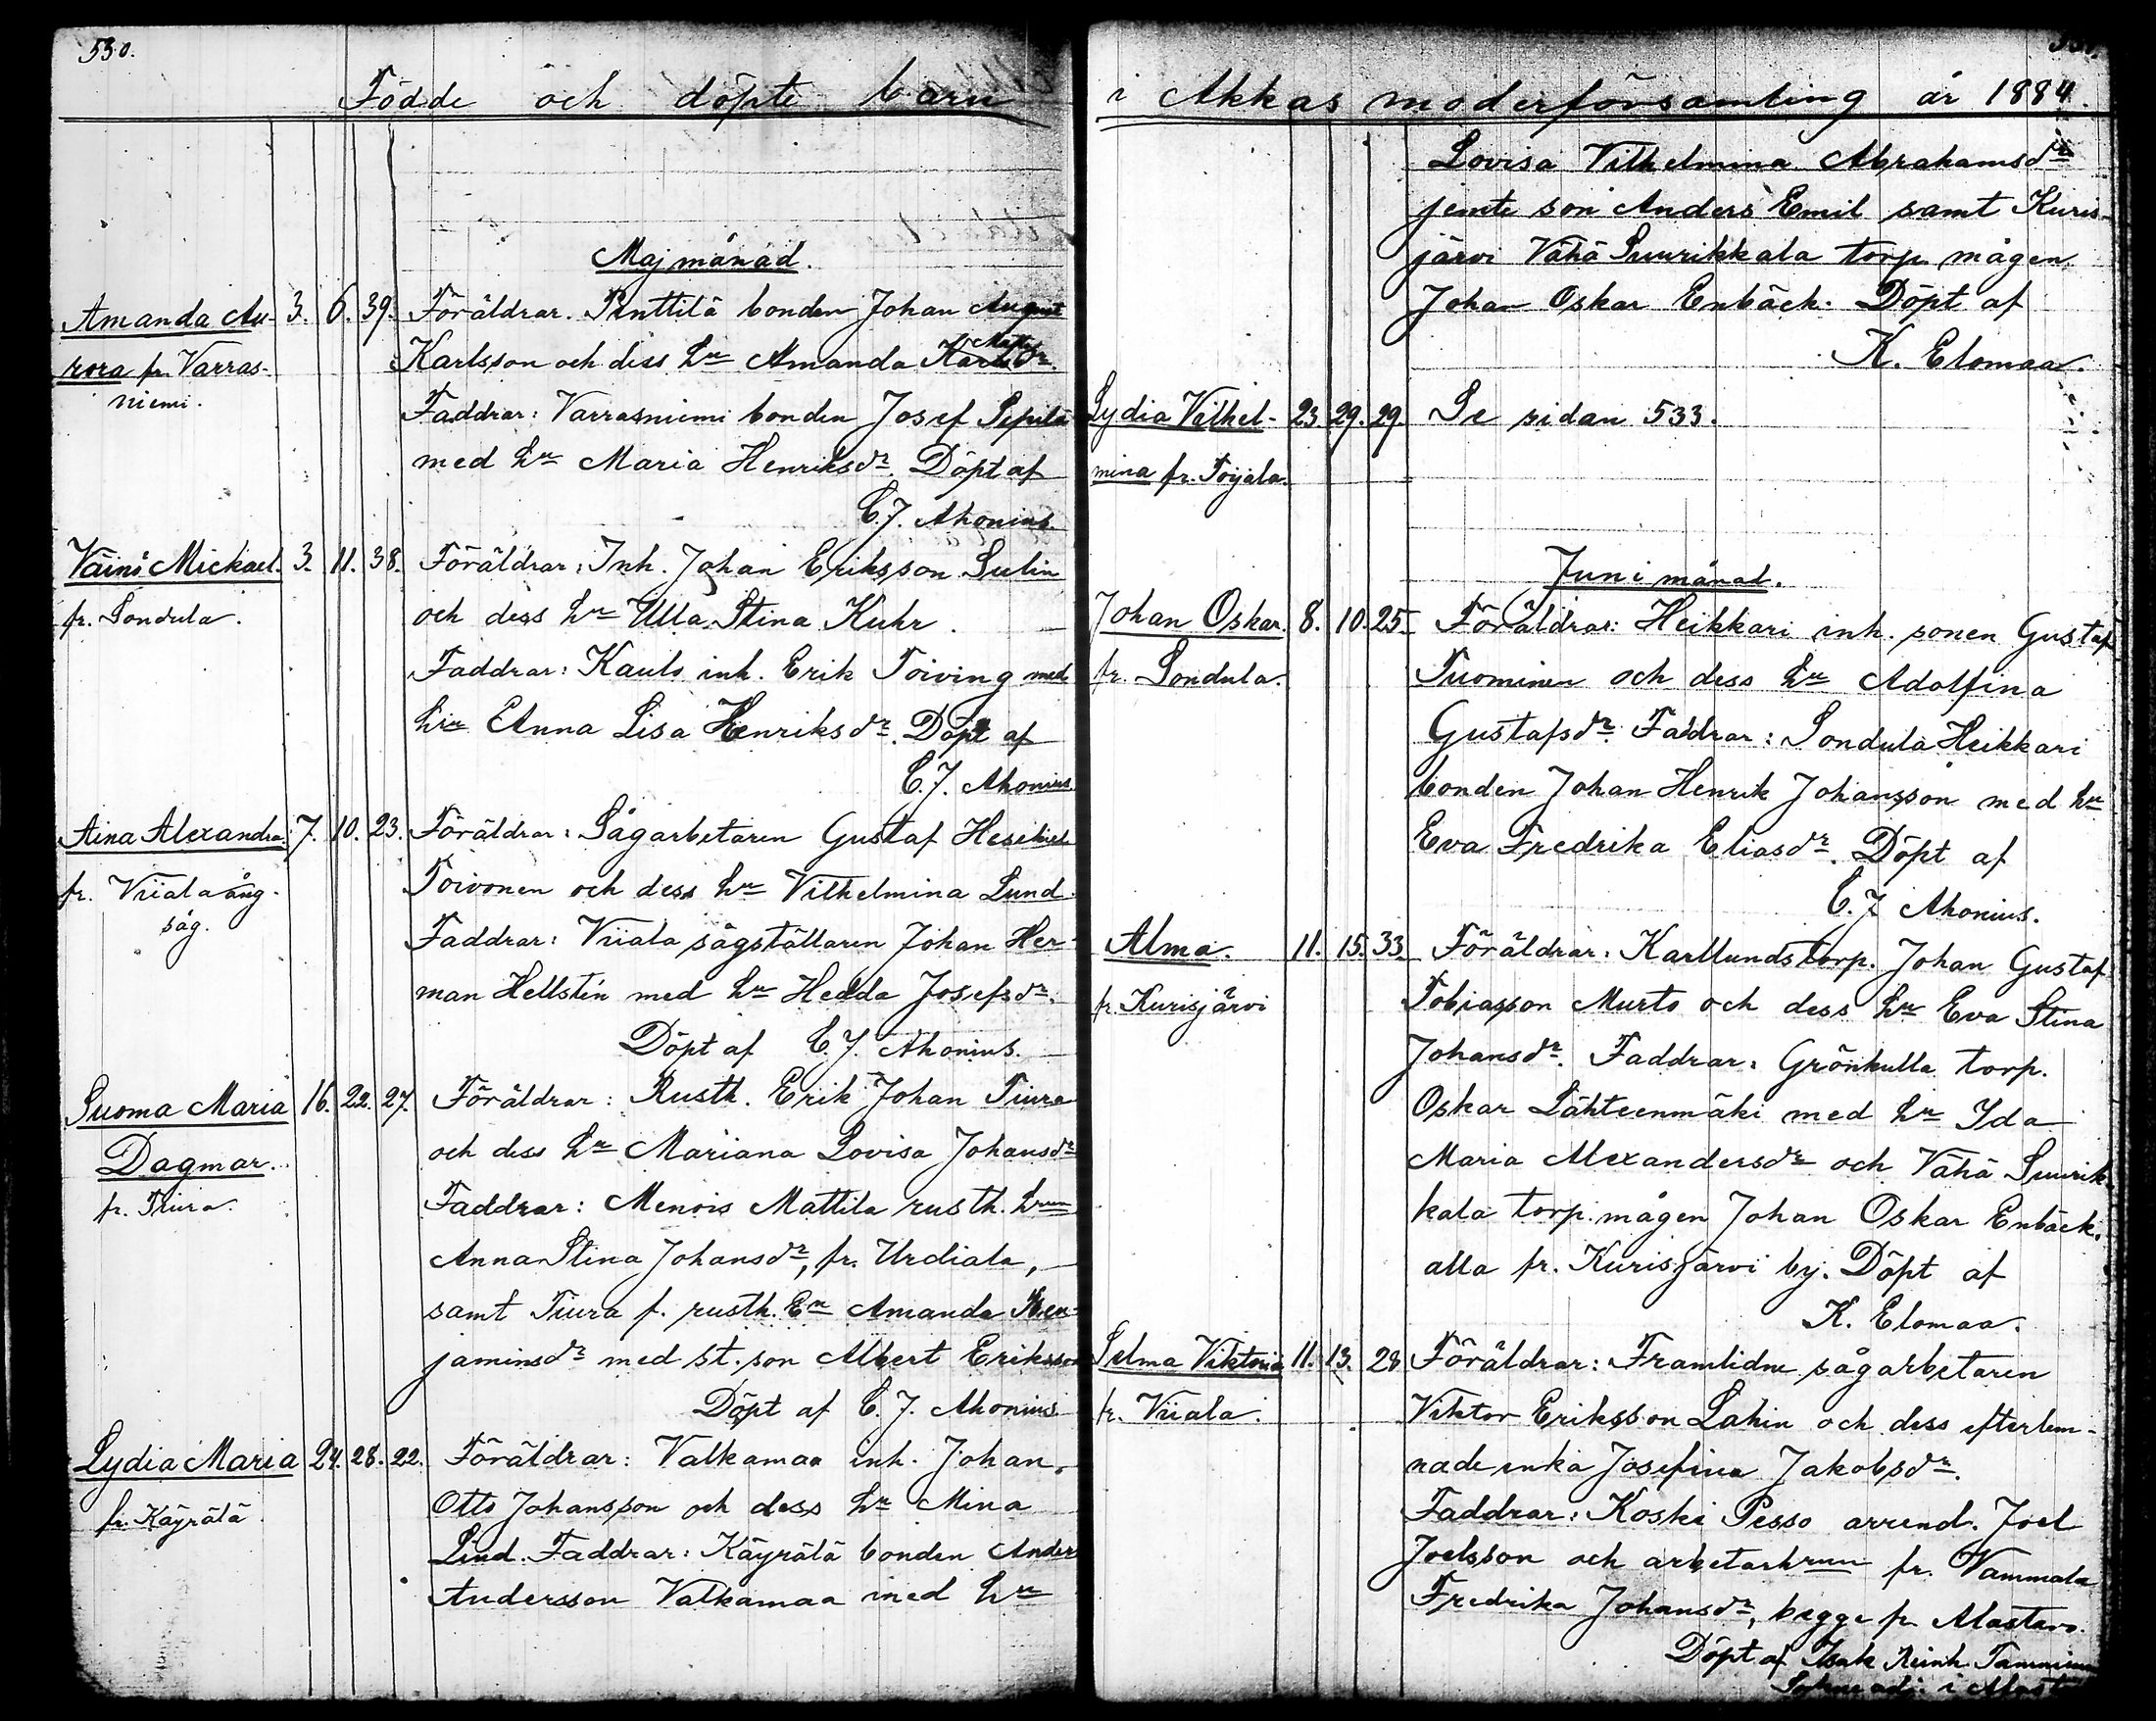 530.
Födde och döpte barn
Maj månad.
Amanda Au- 3. 6. 39. Föräldrar. Penttilä bonden Johan August
rora fr. Varras- Karlsson och dess hu Amanda
niemi.
Faddrar: Varrasniemi bonden Josef Seppilä
med hu Maria Henriksdr. Döpt af
C.J. Ahonius.
Väinö Mickael. 3. 11. 38. Föräldrar: Inh. Johan Eriksson Sulin
fr. Sondula. och dess hu Ulla Stina Kuhr.
Faddrar: Kauls inh. Erik Toiving med
hu Anna Lisa Henriksdr. Döpt af
C.J. Ahonius.
Aina Alexandra. 7. 10. 23. Föräldrar: Sågarbetaren Gustaf Hesekiel
fr. Viiala ång- Toivonen och dess hu Vilhelmina Lund.
såg. Faddrar: Viiala sågställaren Johan Her-
man Hellstén med hu Hedda Josefsdr.
Döpt af C.J. Ahonius.
Suoma Maria 16. 22. 27. Föräldrar: Rusth. Erik Johan Tiura
Dagmar. och dess hu Mariana Lovisa Johansdr
fr. Tiura. Faddrar: Menois Mattila rusth. hrun
Anna Stina Johansdr, fr. Urdiala,
samt Tiura f. rusth. Ea Amanda Ben-
jaminsdr med st. son Albert Eriksson
Döpt af C.J. Ahonius
Lydia Maria 24. 28. 22. Föräldrar: Valkamaa inh. Johan
fr. Käyrälä. Otto Johansson och dess hu Mina
Lind. Faddrar: Käyrälä bonden Anders
Andersson Valkamaa med hu
i Akkas moderförsamling år 1884.
Lovisa Vilhelmina Abrahamsdr
jemte son Anders Emil samt Kuris-
järvi Vähä Suurikkala torp. mågen
Johan Oskar Enbäck. Döpt af
K. Elomaa.
Lydia Vilhel- 23. 29. 29. Se sidan 533.
mina fr. Toijala.
Juni månad.
Johan Oskar. 8. 10. 25. Föräldrar: Heikkari inh. sonen Gustaf
fr. Sondula. Tuominen och dess hu Adolfina
Gustafsdr. Faddrar: Sondula Heikkari
bonden Johan Henrik Johansson med hu
Eva Fredrika Eliasdr. Döpt af
C.J. Ahonius.
Alma. 11. 15. 33. Föräldrar: Karllunds torp. Johan Gustaf
fr. Kurisjärvi Tobiasson Murto och dess hu Eva Stina
Johansdr. Faddrar: Grönkulla torp.
Oskar Lähteenmäki med hu Ida
Maria Alexandersdr och Vähä Suurik-
kala torp. mågen Johan Oskar Enbäck,
alla fr. Kurisjärvi by. Döpt af
K. Elomaa.
Selma Viktoria 11. 13. 28 Föräldrar: Framlidne sågarbetaren
fr. Viiala. Viktor Eriksson Lahin och dess efterlem-
nade enka Josefina Jakobsdr.
Faddrar: Koski Pesso arrend. Joel
Joelsson och arbetarhrun fr. Vammala
Fredrika Johansdr, begge fr. Alastaro.
Döpt af Isak Reinh. Tamminen
i Alast